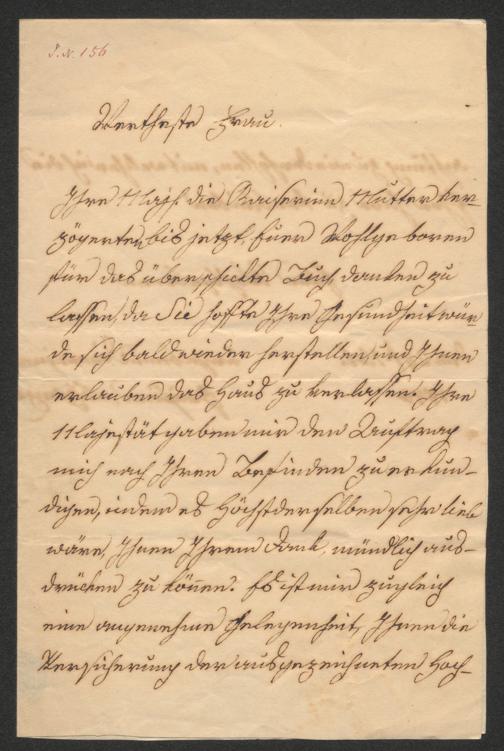 J. N. 156
Wertheste Frau.
Ihre Maj: die Kaiserinn Mutter ver-
zögerten bis jetzt, Euer Wohlgeboren
für das überschickte Buch danken zu
lassen, da Sie hoffte Ihre Gesundheit wür-
de sich bald wieder herstellen, und Ihnen
erlauben das Haus zu verlassen. Ihre
Majestät gaben mir den Auftrag
mich nach Ihren Befinden zu erkun-
digen, indem es Höchstderselben sehr lieb
wäre, Ihnen Ihrem Dank, mündlich aus-
drücken zu können. Es ist mir zugleich
eine angenehme Gelegenheit, Ihnen die
Versicherung der ausgezeichneten Hoch-